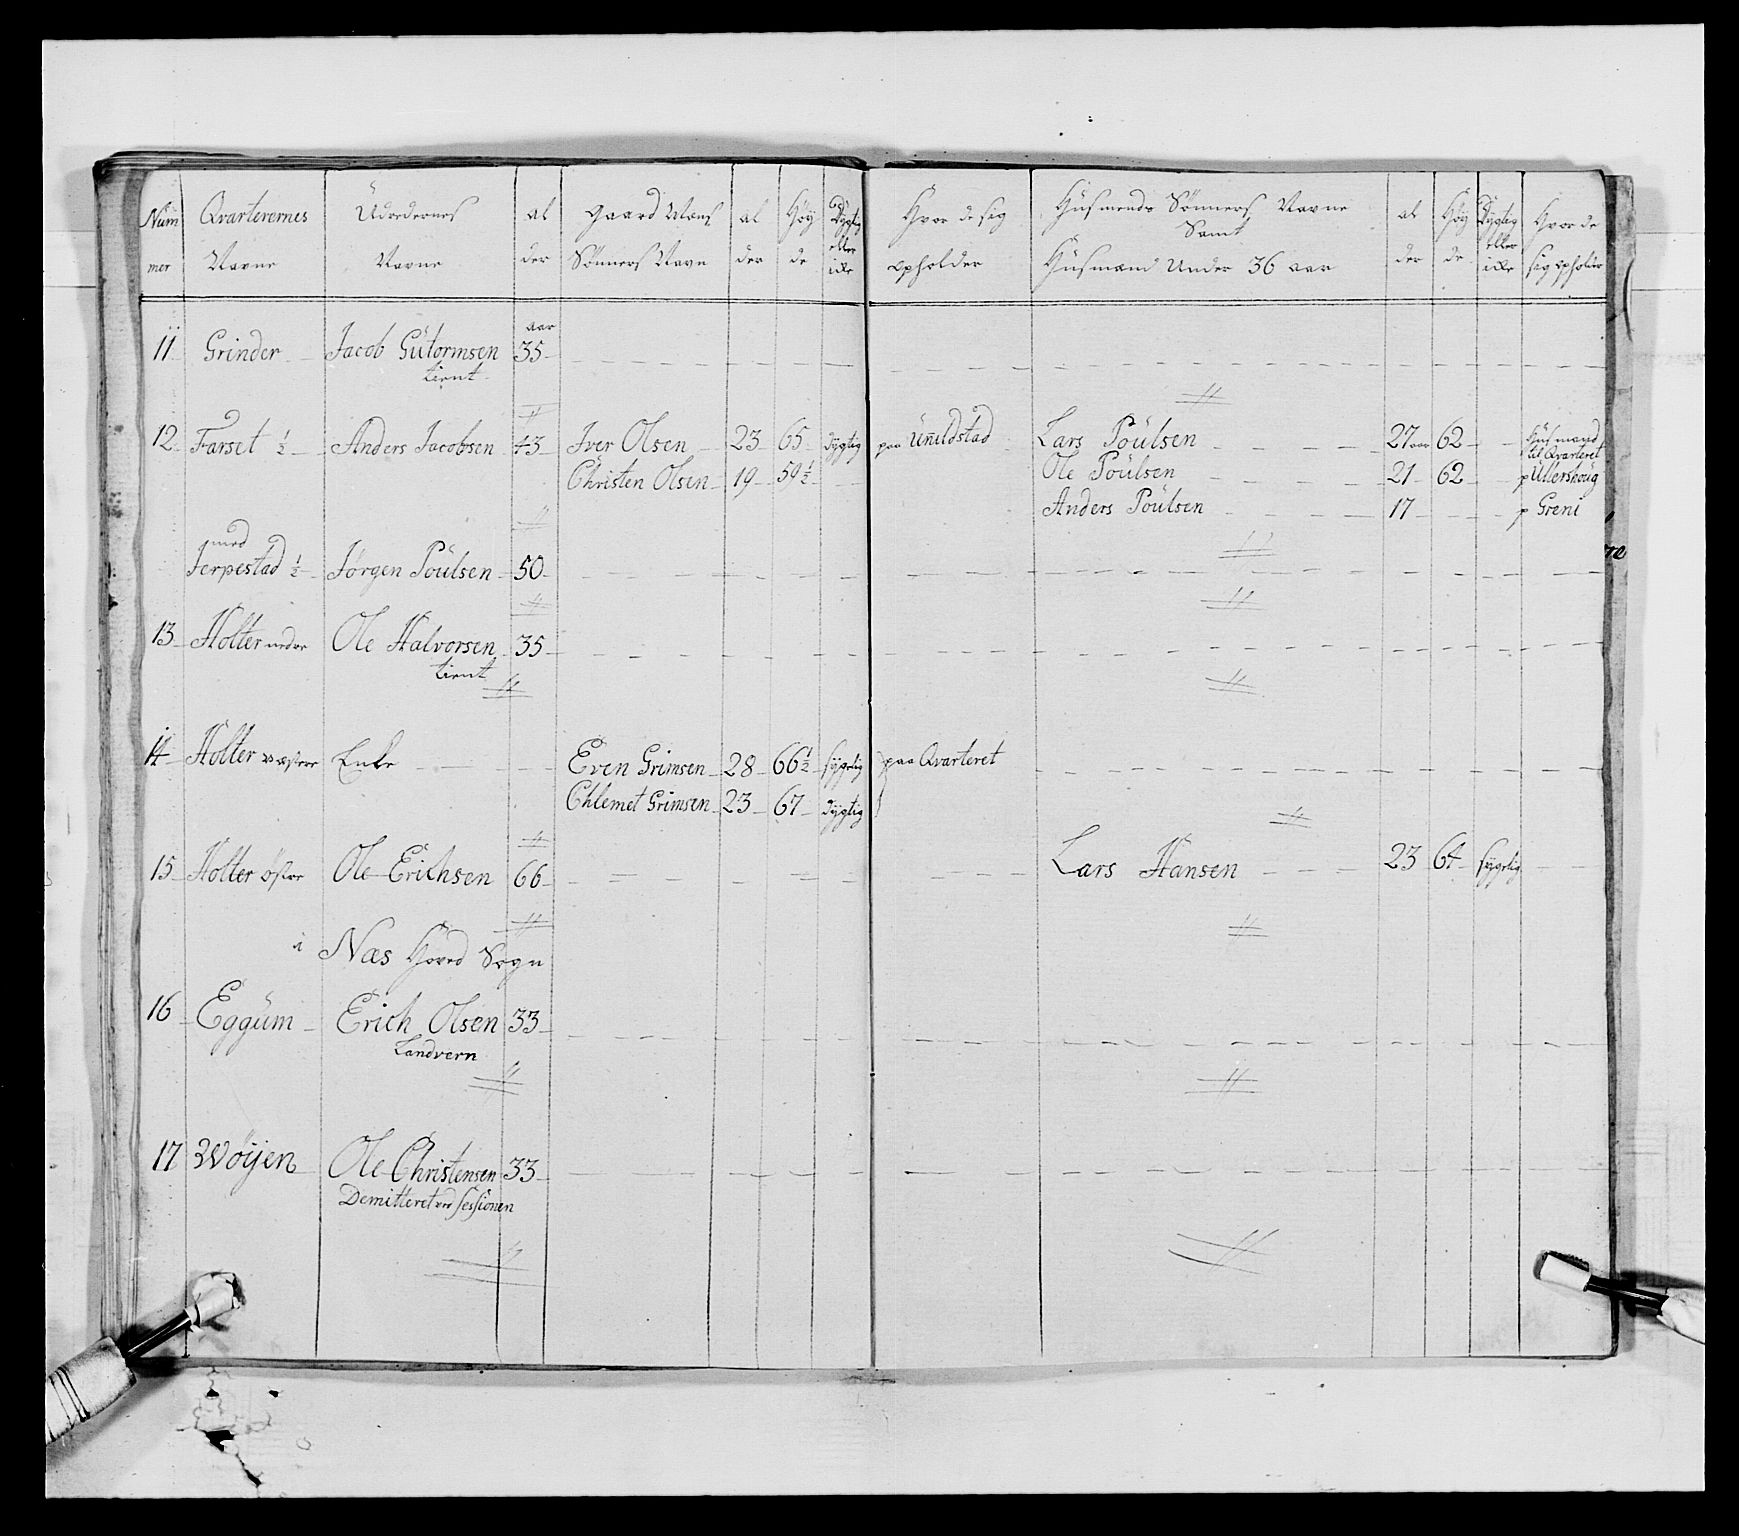 Num Qvarterernes Udredernes al Gaard Mans al Høy Dygtig Hvor de sig Huusmends Sønners Navne al Høy Dygtig Hvor de
eller Samt eller
mer Navne Navne der Sønners Navn der de icke opholder Huusmænd Under 36 aar der de icke sig opholder
aar
11 Grinder Jacob Gutormsen 35
tient
12 Farset ½ Anders Jacobsen 43 Iver Olsen 23 65 dygtig paa Unildstad Lars Poulsen 27 aar 62 Huusmand
til Qvarteret
Christen Olsen 19 59½ Ole Poulsen 21 62 p Ullershoug
Anders Poulsen 17 p Greni
med
Jerpestad ½ Jørgen Poulsen 50
13 Holter nedre Ole Halvorsen 35
tient
14 Holter vestre Enke Even Grimsen 28 66½ sygelig paa Qvarteret
Chlemet Grimsen 23 67 dygtig
15 Holter østre Ole Erichsen 66 Lars Hansen 23 64 sygelig
i Næs Hoved Sogn
16 Eggum Erich Olsen 33
Landvern
17 Wøyen Ole Christensen 33
Demitteret ved Sessionen